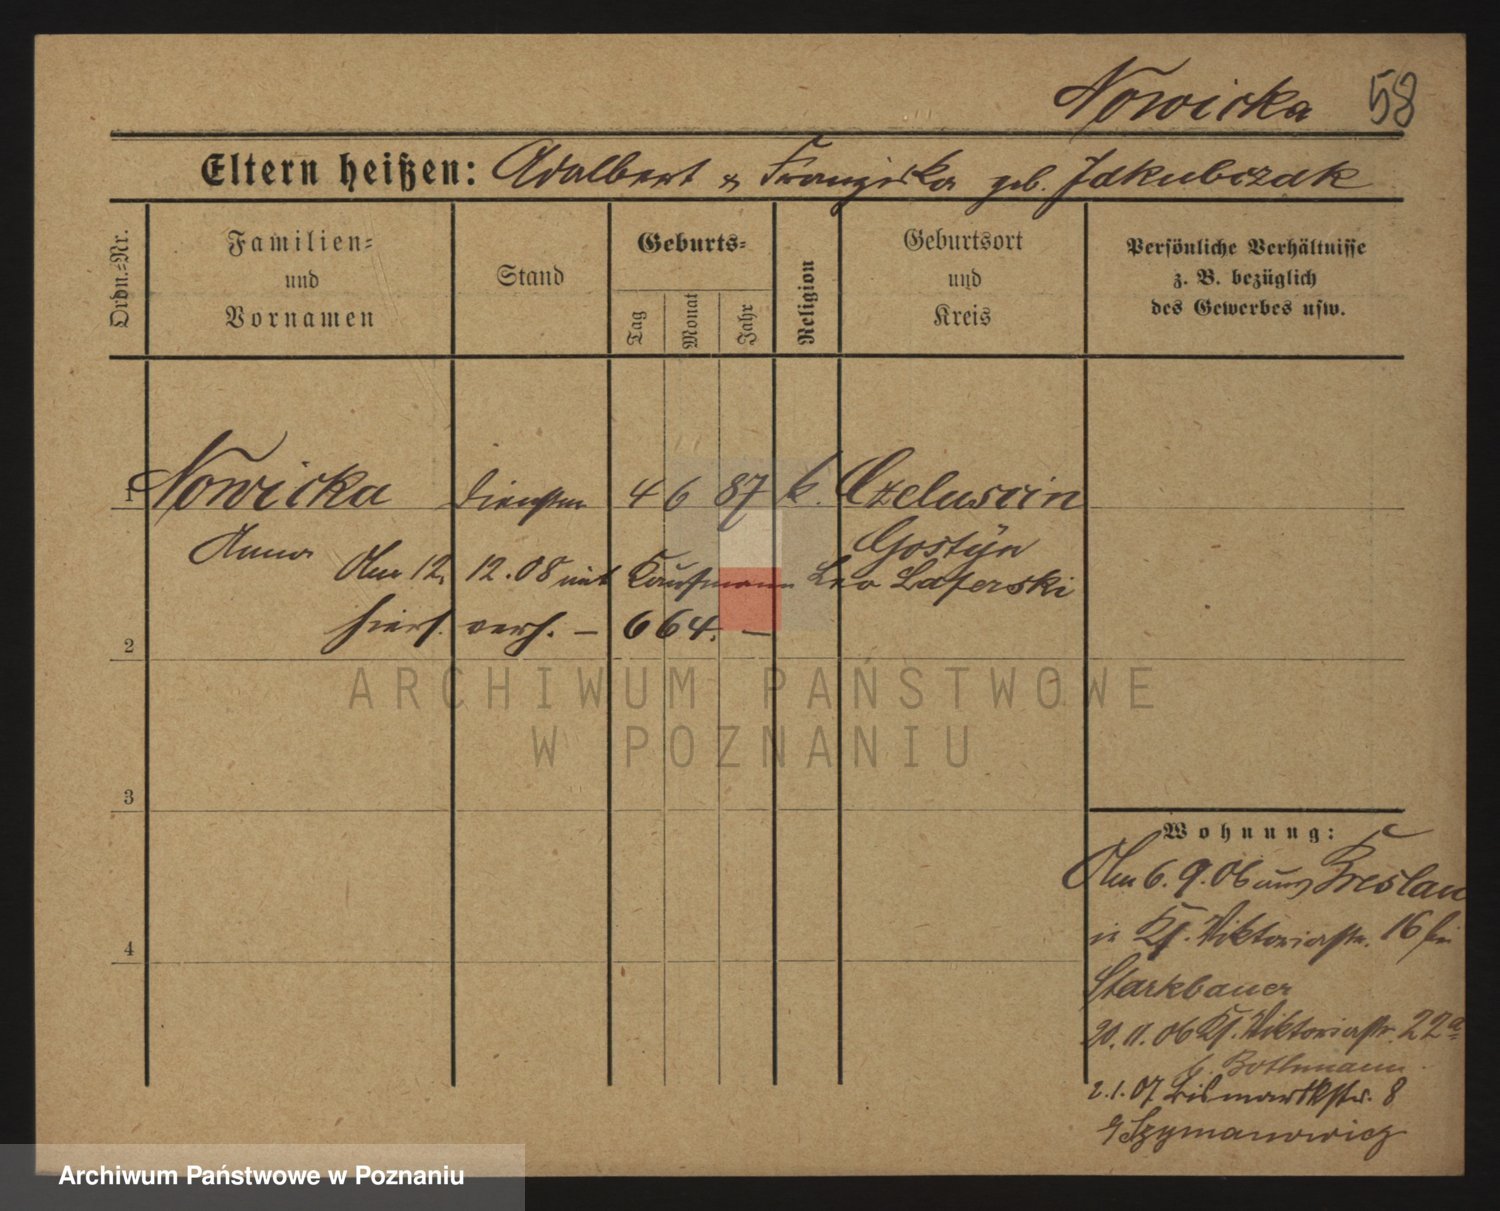 Nowicka 58
Eltern heißen: Adalbert & Franziska geb. Jakubczak
Ordn.=Nr.
Familien=
und
Vornamen
Stand
Geburts=
Tag
Monat
Jahr
Religion
Geburtsort
und
Kreis
Persönliche Verhältnisse
z. B. bezüglich
des Gewerbes usw.
1 Nowicka 4 6 87 k. Czeluscin
Anna Gostyn
Am 12. 12.08 mit Kaufmann Leo Laferski
hiers. verh. – 664. –
2
ARCHIWUM PAŃSTWOWE
W POZNANIU
3
4
Wohnung:
Am 6.9.06 aus Breslau
in Viktoriastr. 16 bei
Starkbauer
20.11.06 Viktoriastr. 22a
b. Bothmann
2.1.07 Bismarckstr. 8
Szymanowicz
Archiwum Państwowe w Poznaniu